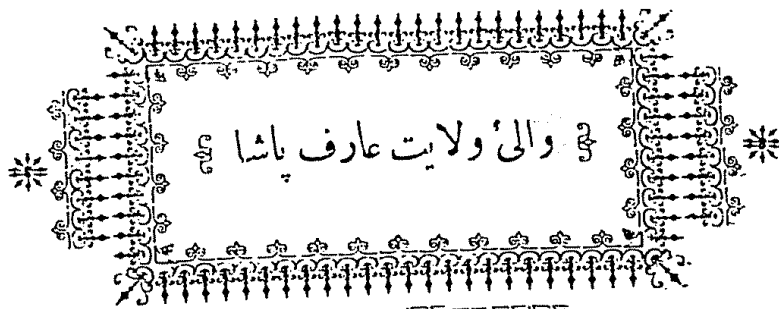 والئ ولایت عارف پاشا